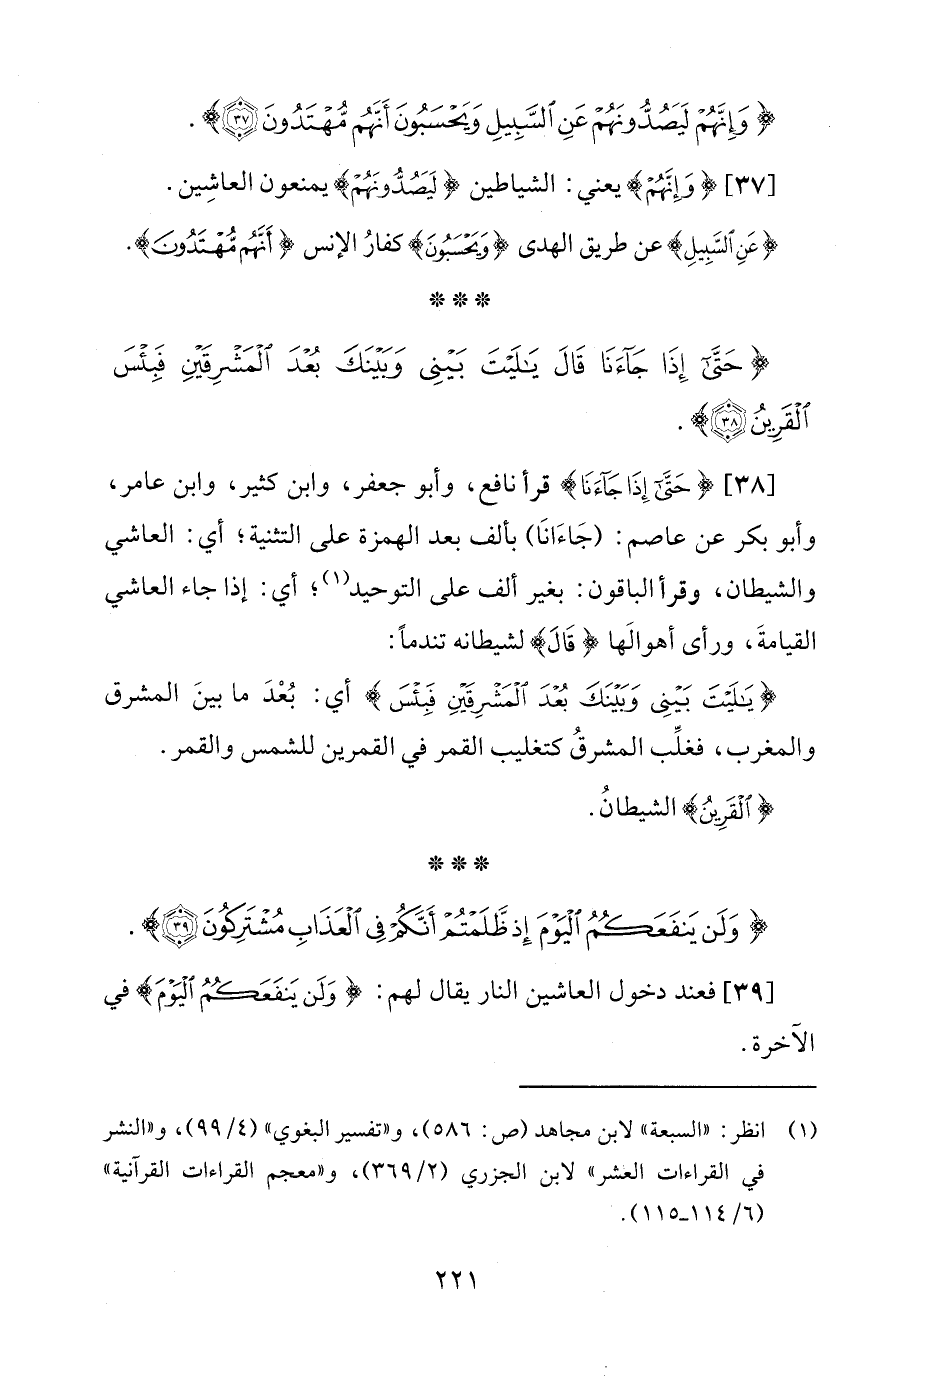 ﴿ وَإِنَّهُمْ لَيَصُدُّونَهُمْ عَنِ ٱلسَّبِيلِ وَيَحْسَبُونَ أَنَّهُم مُّهْتَدُونَ ٣٧﴾ .
[٣٧] ﴿ وَإِنَّهُمْ﴾ يعني: الشياطين ﴿ لَيَصُدُّونَهُمْ﴾ يمنعون العاشِين .
﴿ عَنِ ٱلسَّبِيلِ﴾ عن طريق الهدى ﴿وَيَحْسَبُونَ﴾ كفارُ الإنس ﴿ أَنَّهُم مُّهْتَدُونَ﴾.
* * *
﴿ حَتَّىٰٓ إِذَا جَآءَنَا قَالَ يَٰلَيْتَ بَيْنِى وَبَيْنَكَ بُعْدَ ٱلْمَشْرِقَيْنِ فَبِئْسَ
ٱلْقَرِينُ ٣٨﴾ .
[٣٨] ﴿ حَتَّىٰٓ إِذَا جَآءَنَا﴾ قرأ نافع، وأبو جعفر، وابن كثير، وابن عامر،
وأبو بكر عن عاصم: (جَاءَانَا) بألف بعد الهمزة على التثنية؛ أي: العاشي
والشيطان، وقرأ الباقون: بغير ألف على التوحيد(١)؛ أي: إذا جاء العاشي
القيامةَ، ورأى أهوالَها ﴿ قَالَ﴾ لشيطانه تندماً:
﴿ يَٰلَيْتَ بَيْنِى وَبَيْنَكَ بُعْدَ ٱلْمَشْرِقَيْنِ فَبِئْسَ ﴾ أي: بُعْدَ ما بينَ المشرق
والمغرب، فغلِّب المشرقُ كتغليب القمر في القمرين للشمس والقمر .
﴿ ٱلْقَرِينُ﴾ الشيطانُ.
* * *
﴿ وَلَن يَنفَعَكُمُ ٱلْيَوْمَ إِذ ظَّلَمْتُمْ أَنَّكُمْ فِى ٱلْعَذَابِ مُشْتَرِكُونَ ٣٩﴾ .
[٣٩] فعند دخول العاشين النار يقال لهم: ﴿ وَلَن يَنفَعَكُمُ ٱلْيَوْمَ﴾ في
الآخرة .
(١) انظر: «السبعة» لابن مجاهد (ص: ٥٨٦)، و«تفسير البغوي» (٤/ ٩٩)، و«النشر
في القراءات العشر» لابن الجزري (٢/ ٣٦٩)، و«معجم القراءات القرآنية»
(٦/ ١١٤ـ١١٥).
٢٢١